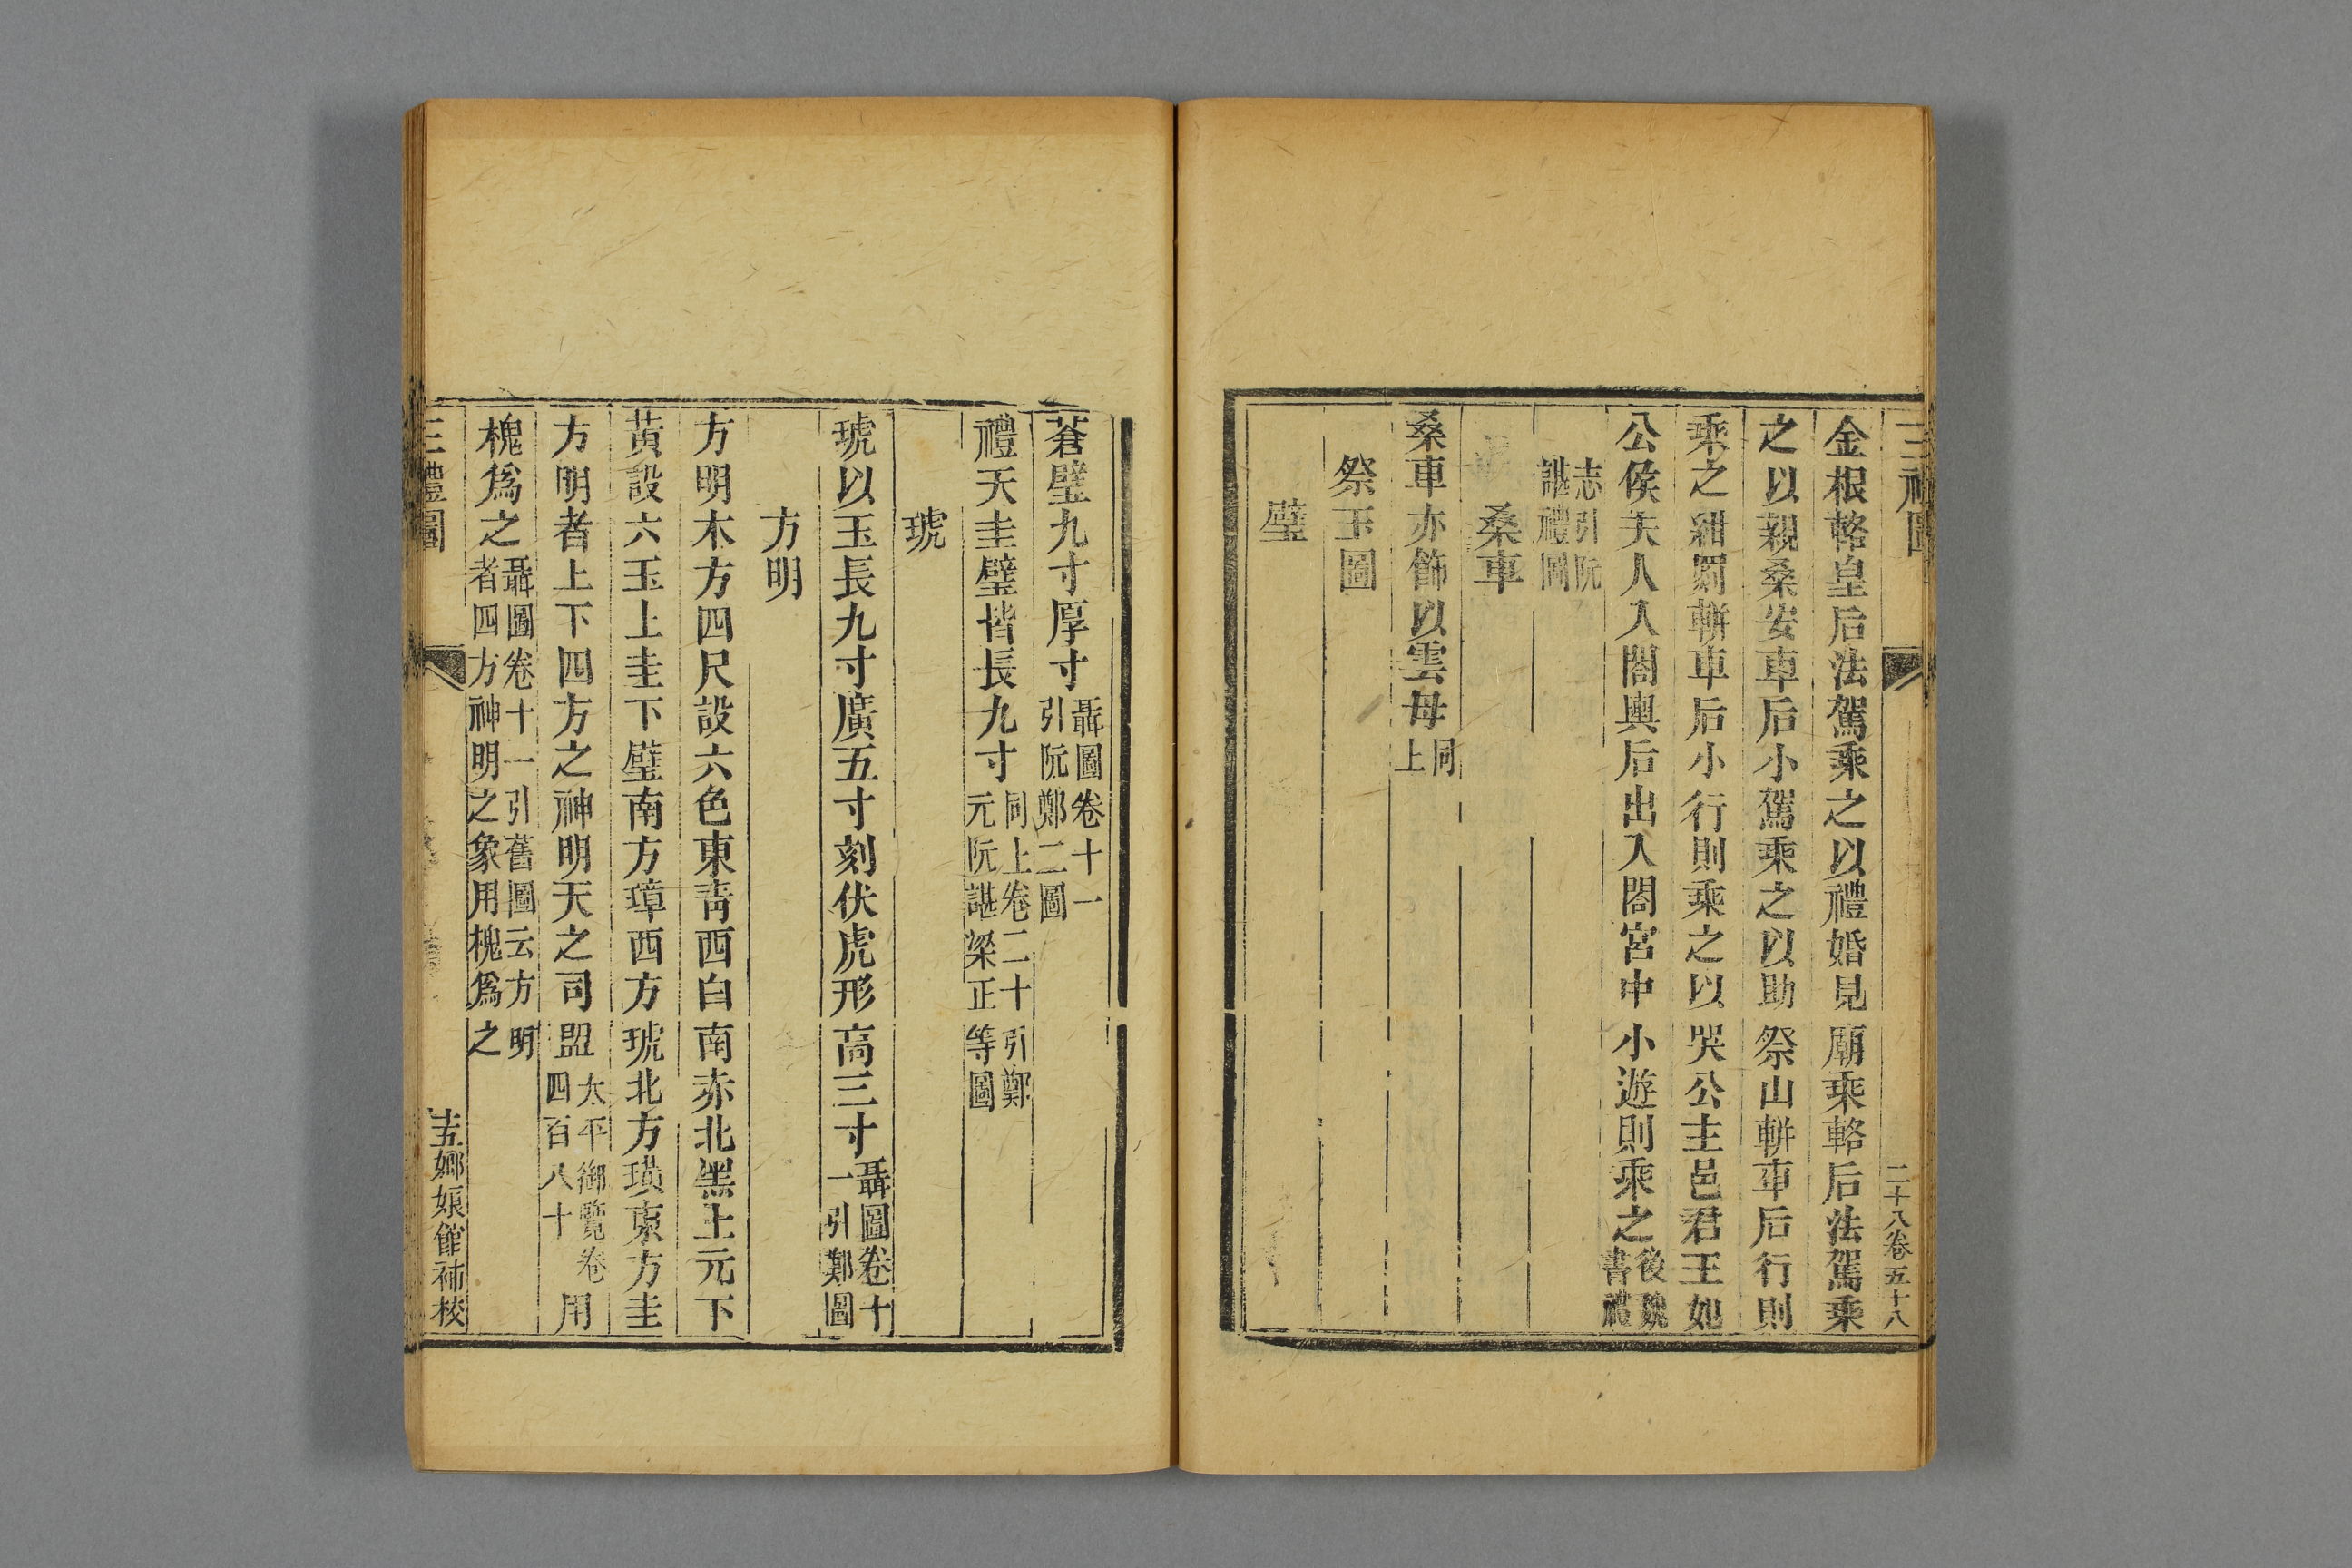 三禮圖
二十八卷五十八
金根輅皇后法駕乘之以禮婚見廟乘輅后法駕乘
之以親桑安車后小駕乘之以助祭山軿車后行則
乘之紺罽軿車后小行則乘之以哭公主邑君王妃
公侯夫人入閤輿后出入閤宮中小遊則乘之後魏書禮
志引阮諶禮圖
桑車
桑車亦飾以雲母同上
祭玉圖
璧
蒼璧九寸厚寸聶圖卷十一引阮鄭二圖
禮天圭璧皆長九寸同上卷二十引鄭元阮諶梁正等圖
琥
琥以玉長九寸廣五寸刻伏虎形高三寸聶圖卷十一引鄭圖
方明
方明木方四尺設六色東青西白南赤北黑上元下
黃設六玉上圭下璧南方璋西方琥北方璜東方圭
方明者上下四方之神明天之司盟太平御覽卷四百八十用
槐爲之聶圖卷十一引舊圖云方明者四方神明之象用槐爲之
三禮圖
十五嫏嬛館補校